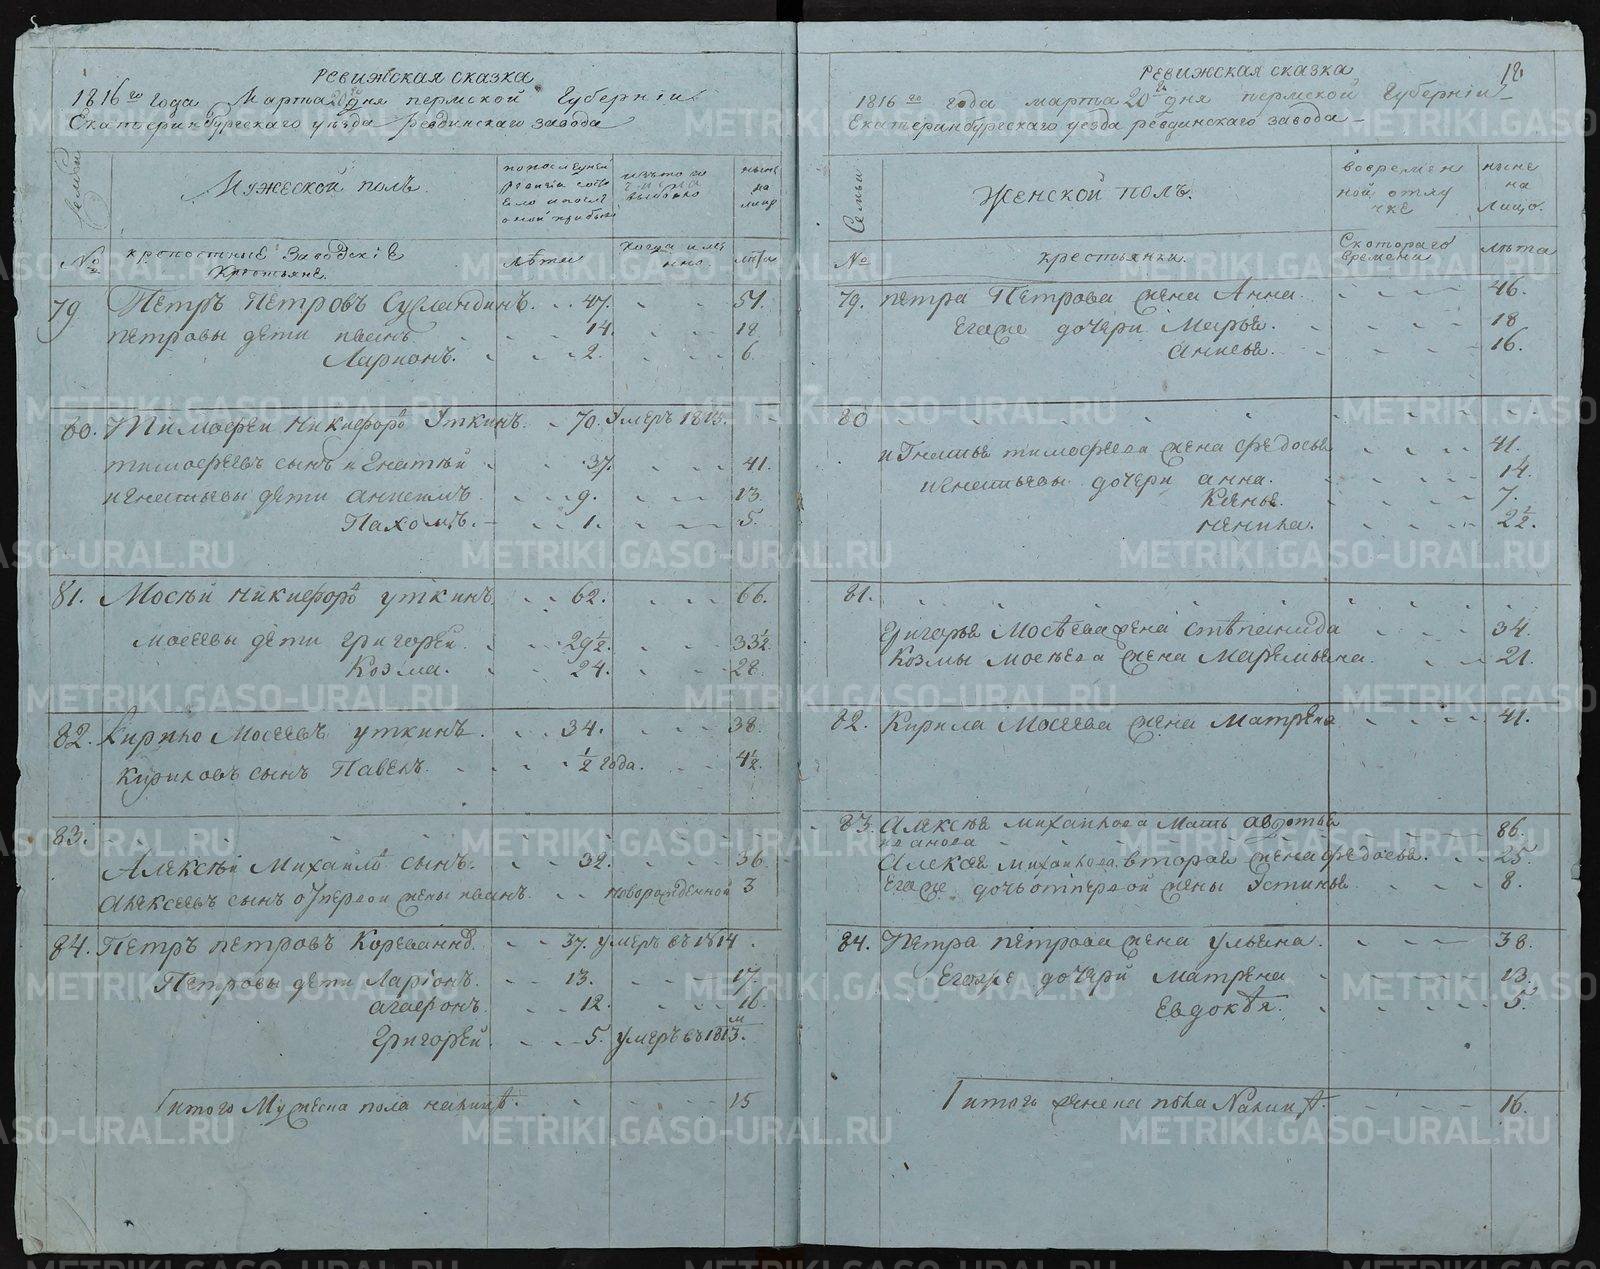 Ревижская сказка
1816го года Марта 20го дня пермской Губернiи
Екатеринбургскаго уѣзда ревдинскаго завода
Семьи
Мѫжеской полъ.
ныне на лицо
№
крепостные Заводскiе
Крестьяне.
лѣта
когда именно.
лѣта
79 Петръ Петровъ Сусландинъ. 47. 51.
петровы дети иванъ 14 18.
Ларионъ. 2. 6.
80. Тимофеи Никифоровъ Уткинъ. 70. Умеръ 1813.
тимофеевъ сынъ игнатѣй 37. 41.
игнатьевы дети анисимъ 9. 13.
Пахомъ. 1. 5.
81. Мосѣй никифоровъ уткинъ 62. 66.
мосеевы дети григорей. 29½. 33½
Козма. 24. 28.
82. Кирило Мосеевъ уткинъ. 34. 38.
Кириловъ сынъ Павелъ. ½ года. 4½.
83.
Алексѣй Михайловъ сынъ. 32. 36.
алексеевъ сынъ отпервои жены иванъ. новорожденной 3
84. Петръ петровъ Кореванновъ. 37. умеръ въ 1814
Петровы дети Ларiонъ. 13. 17.
агафонъ. 12. 16.
Григорей. 5. умеръ въ 1813м.
итого Мужеска пола налицѣ. 15
Ревижская сказка
18.
1816го года марта 20го дня пермской Губернiи
Екатеринбургскаго уезда ревдинскаго завода
Семьи
Женской полъ.
вовременной отлучке
ныне на лицо.
№
крестьянки.
Скотораго времени
лѣта
79. петра Петрова жена Анна. 46.
Егоже дочери Марья. 18
анисья. 16.
80
игнатья тимофеева жена федосья 41.
игнатьевы дочери анна. 14.
7.
2½.
81.
григорья Мосѣева жена стѣпанида 34.
Козмы мосѣева жена Маремьяна. 21.
82. Кирила Мосеева жена матрена 41.
83. Алексѣя михайлова Мать авдотья
иванова 86.
Алексѣя михайлова вторая жена федосья. 25.
Егоже дочь отпервой жены Устинья 8.
84. Петра петрова жена ульяна. 38.
Егоже дочерй матрена 13.
Евдокѣя. 5.
итого женска пола налицѣ. 16.
METRIKI.GASO-URAL.RU